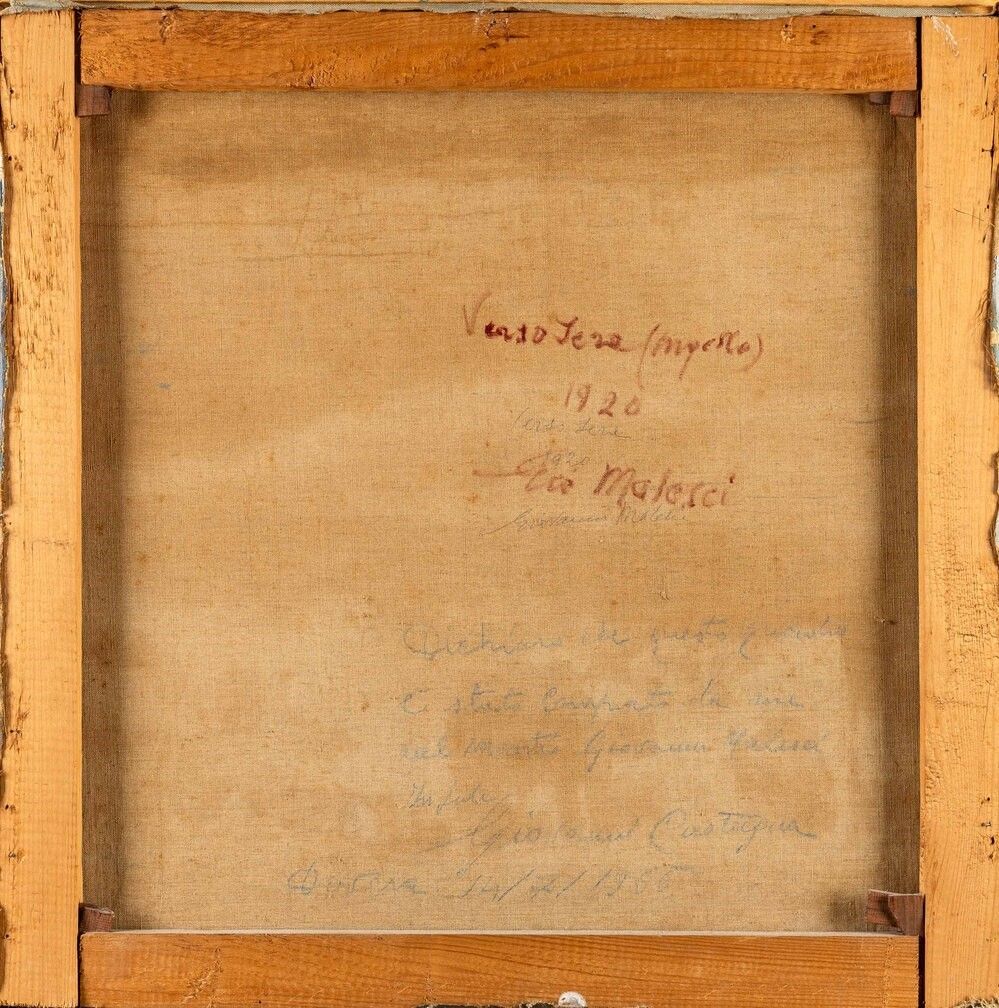 Verso Sera (Mugello)
1920
Verso Sera
1920
Gio Malesci
Giovanni Malesci
Dichiaro che questo quadro
è stato comprato da me
dal Maestro Giovanni Malesci
In fede
Giovanni Castagna
1966